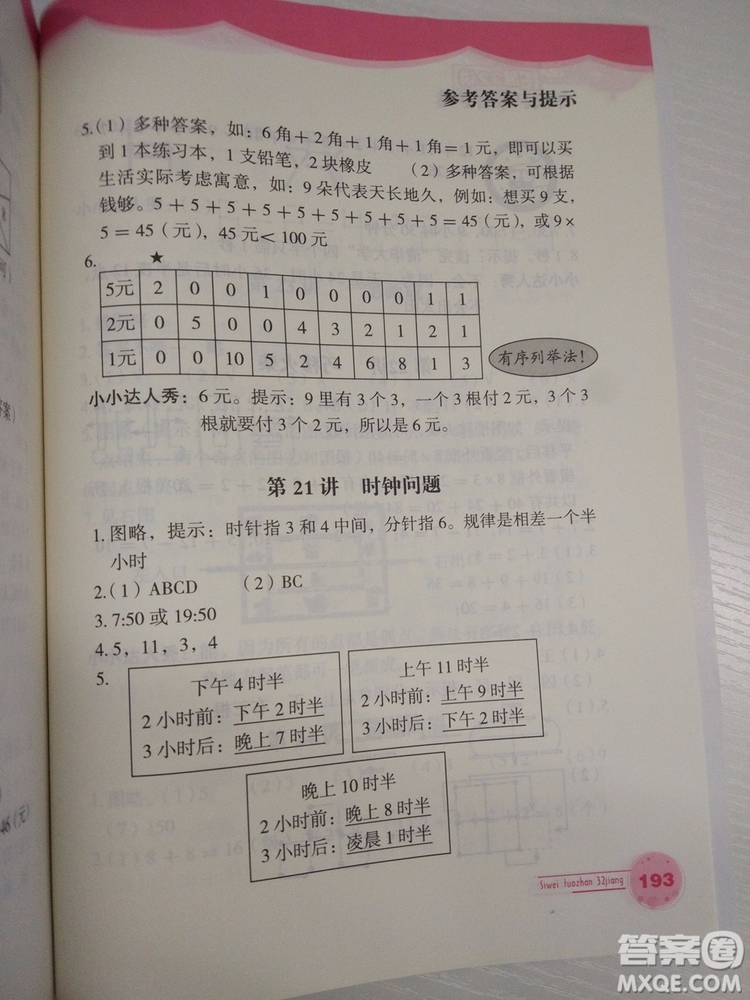 参考答案与提示
5.(1)多种答案，如：6角+2角+1角+1角=1元，即可以买
到1本练习本，1支铅笔，2块橡皮 (2)多种答案，可根据
生活实际考虑寓意，如：9朵代表天长地久，例如：想买9支，
钱够。5+5+5+5+5+5+5+5+5=45(元)，或9×
5=45(元)，45元<100元
6. ★
5元 2 0 0 1 0 0 0 0 1 1
2元 0 5 0 0 4 3 2 1 2 1
1元 0 0 10 5 2 4 6 8 1 3
有序列举法！
小小达人秀：6元。提示：9里有3个3，一个3根付2元，3个3
根就要付3个2元，所以是6元。
第21讲 时钟问题
1.图略，提示：时针指3和4中间，分针指6。规律是相差一个半
小时
2.(1)ABCD (2)BC
3.7:50或19:50
4.5，11，3，4
5.
下午4时半
2小时前：下午2时半
3小时后：晚上7时半
上午11时半
2小时前：上午9时半
3小时后：下午2时半
晚上10时半
2小时前：晚上8时半
3小时后：凌晨1时半
Siwei tuozhan 32jiang
193
答案圈
MXQE.COM